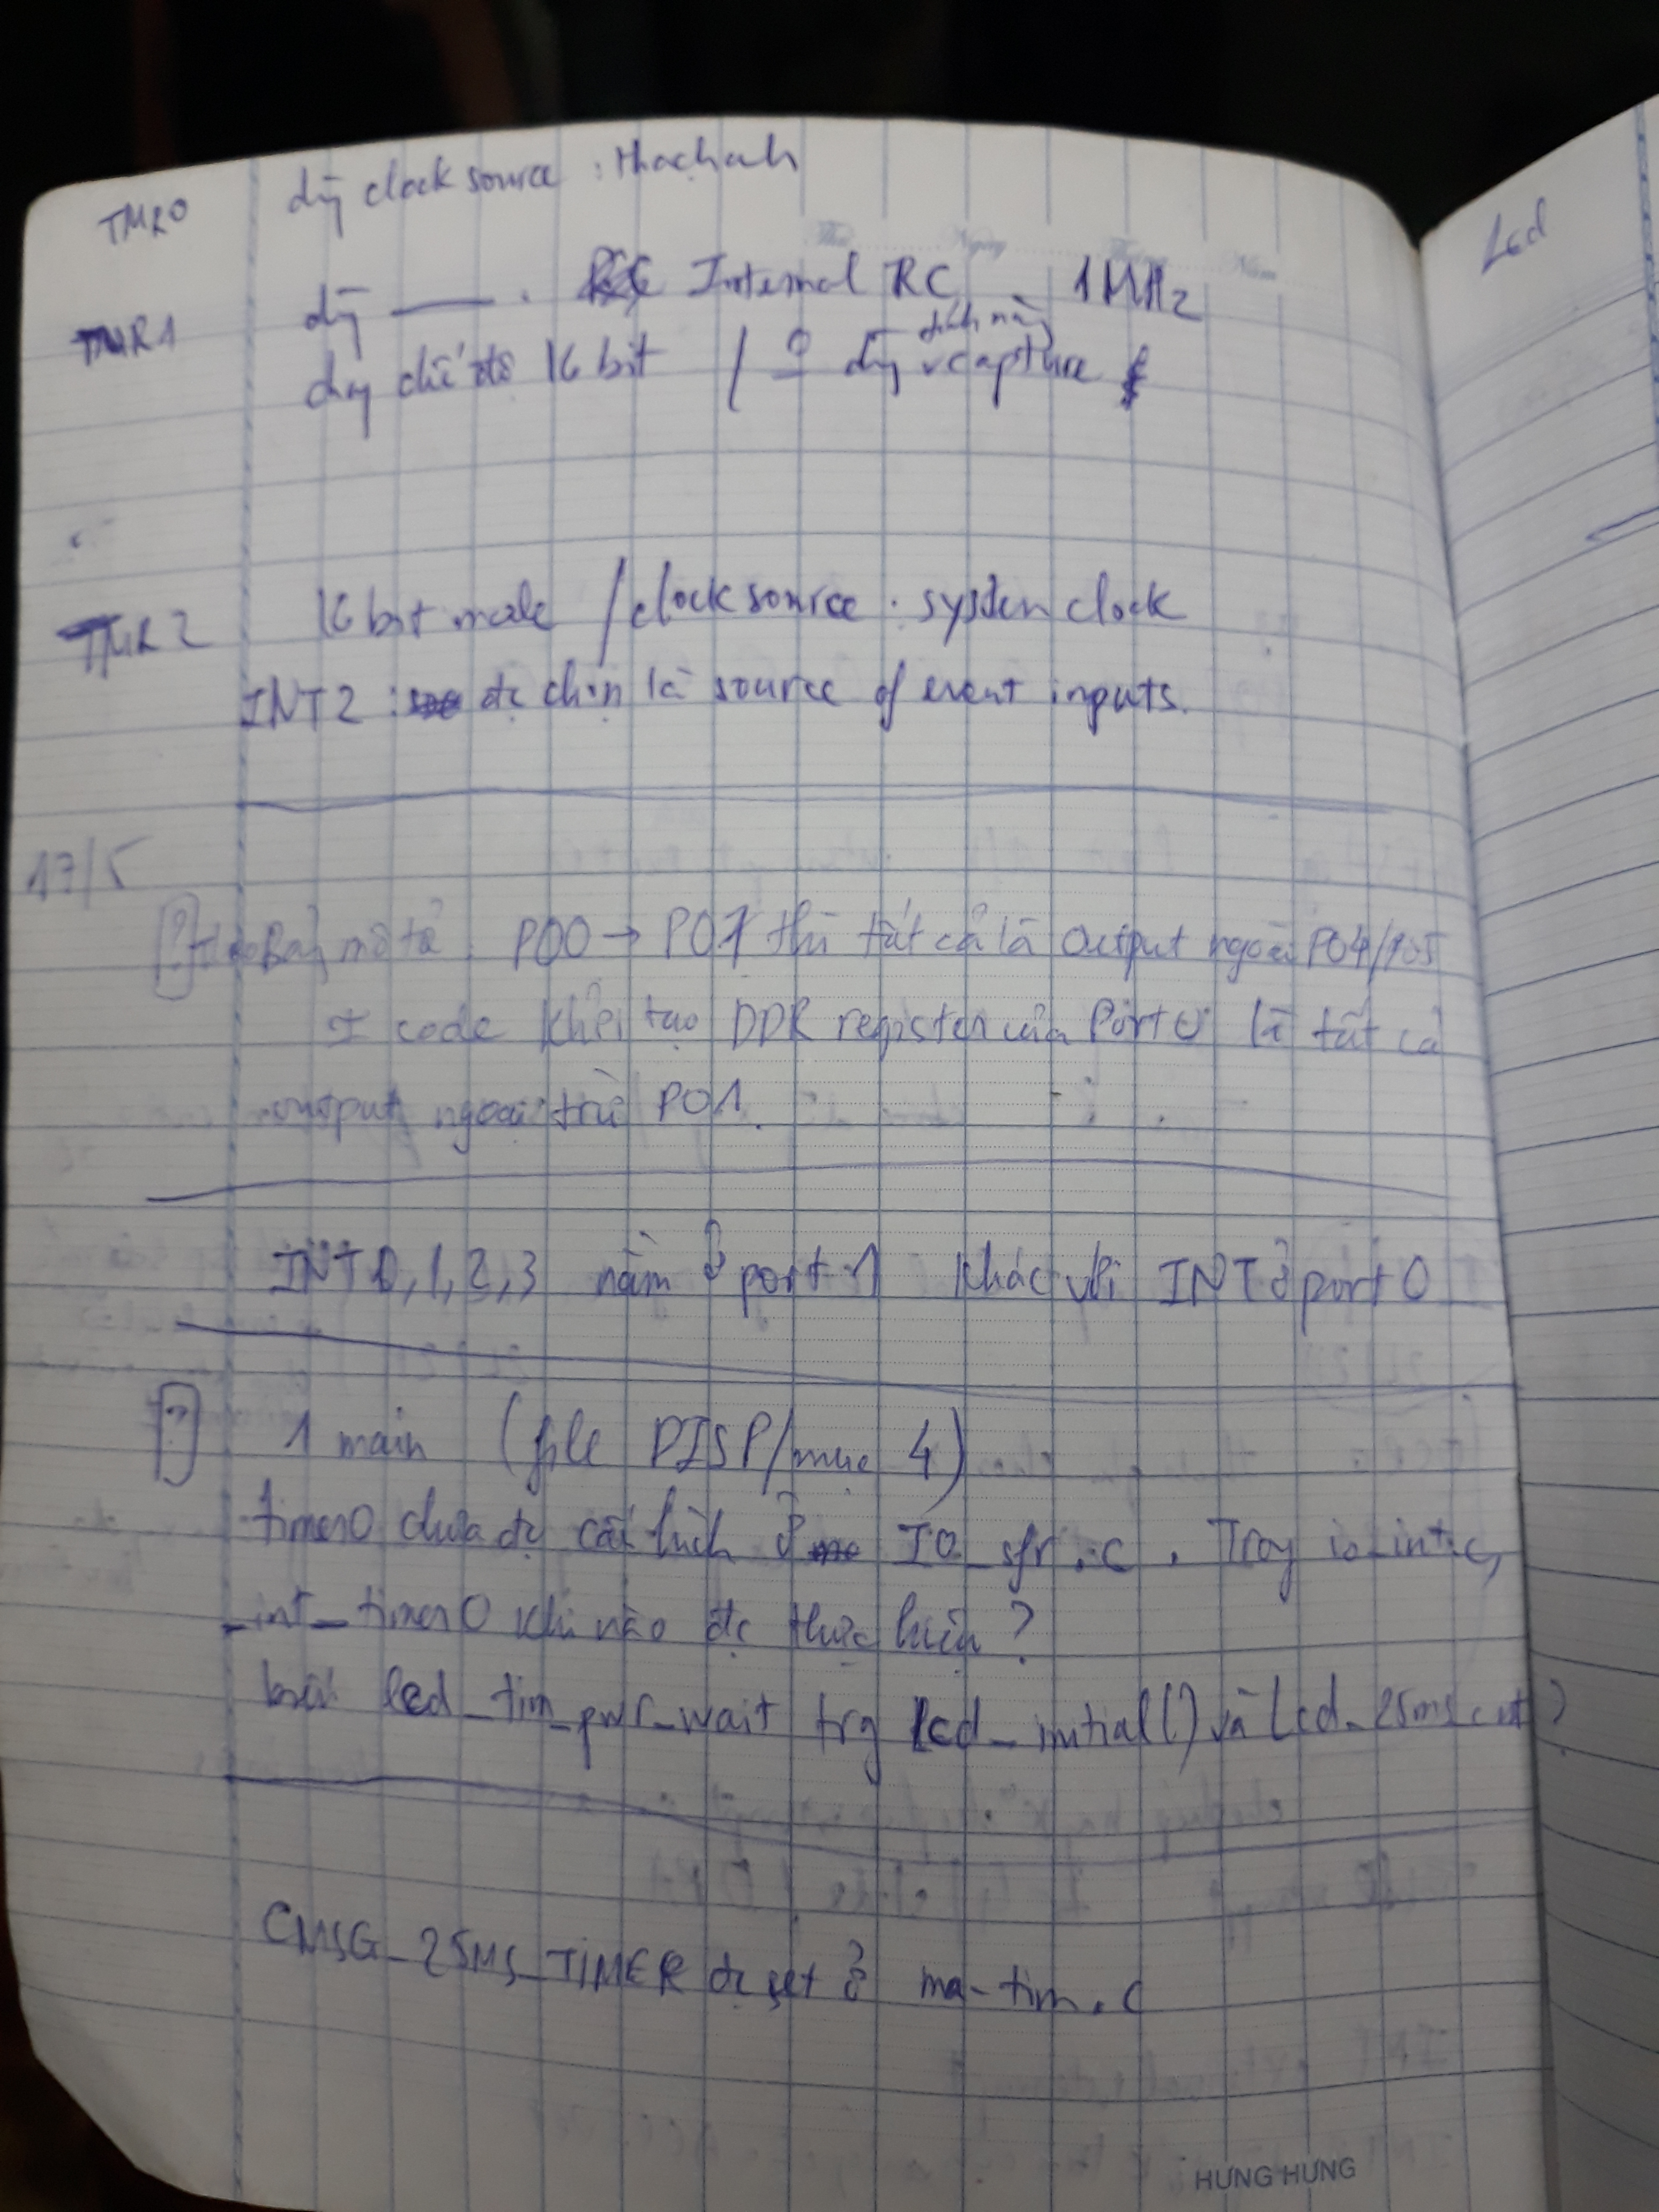 TMR0 dùg clock source : thạch anh
Thứ Ngày Tháng Năm
Led
TMR1 dùg . Internal RC 1MHz
chíh năg
dùg chế độ 16 bit / dùg capture
TMR2 16 bit mode / clock source : system clock
INT2 : đc chọn là source of event inputs.
17/5
? Bảg mô tả P00 → P07 thì tất cả là Output ngoài P04/P05
I code khởi tạo DDR register của Port0 là tất cả
output ngoại trừ P01.
INT0,1,2,3 nằm ở port 1 khác với INT ở port 0
? 1 main (file DISP/mục 4)
timer0 chưa đc cấu hình ở IO_sfr.c . Trog io_int.c,
_int_timer0 khi nào đc thực hiện ?
biến lcd_tim_pwr_wait trg lcd_initial() và lcd_25ms_cnt ?
CMSG_25MS_TIMER đc set ở ma_tim.c
HUNG HUNG